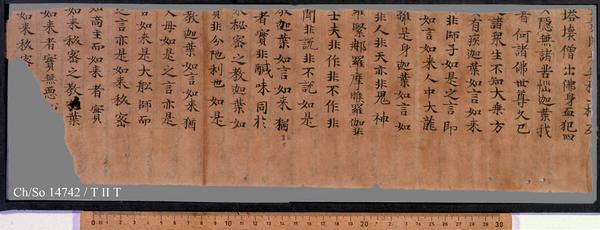 塔壞僧出佛身血犯四
隱無諸善惱迦葉我
者何諸佛世尊久已
諸眾生不知大乘方
有疾迦葉如言如來
非師子如是之言即
如言如來人中大龍
是身迦葉如言如
非人非天亦非鬼神
羅緊那羅摩睺羅伽非
士夫非作非不作非
聞非說非不說如是
迦葉如言如來猶
者實非鹹味同於
來秘密之教迦葉如
實非分陀利也如是
教迦葉如言如來猶
父母如是之言亦是
言如來是大船師而
之言亦是如來秘密
如商主而如來者實
如來秘密之教葉
如來者實無惡
如來秘密
Ch/So 14742 / T II T
0 10 20 30